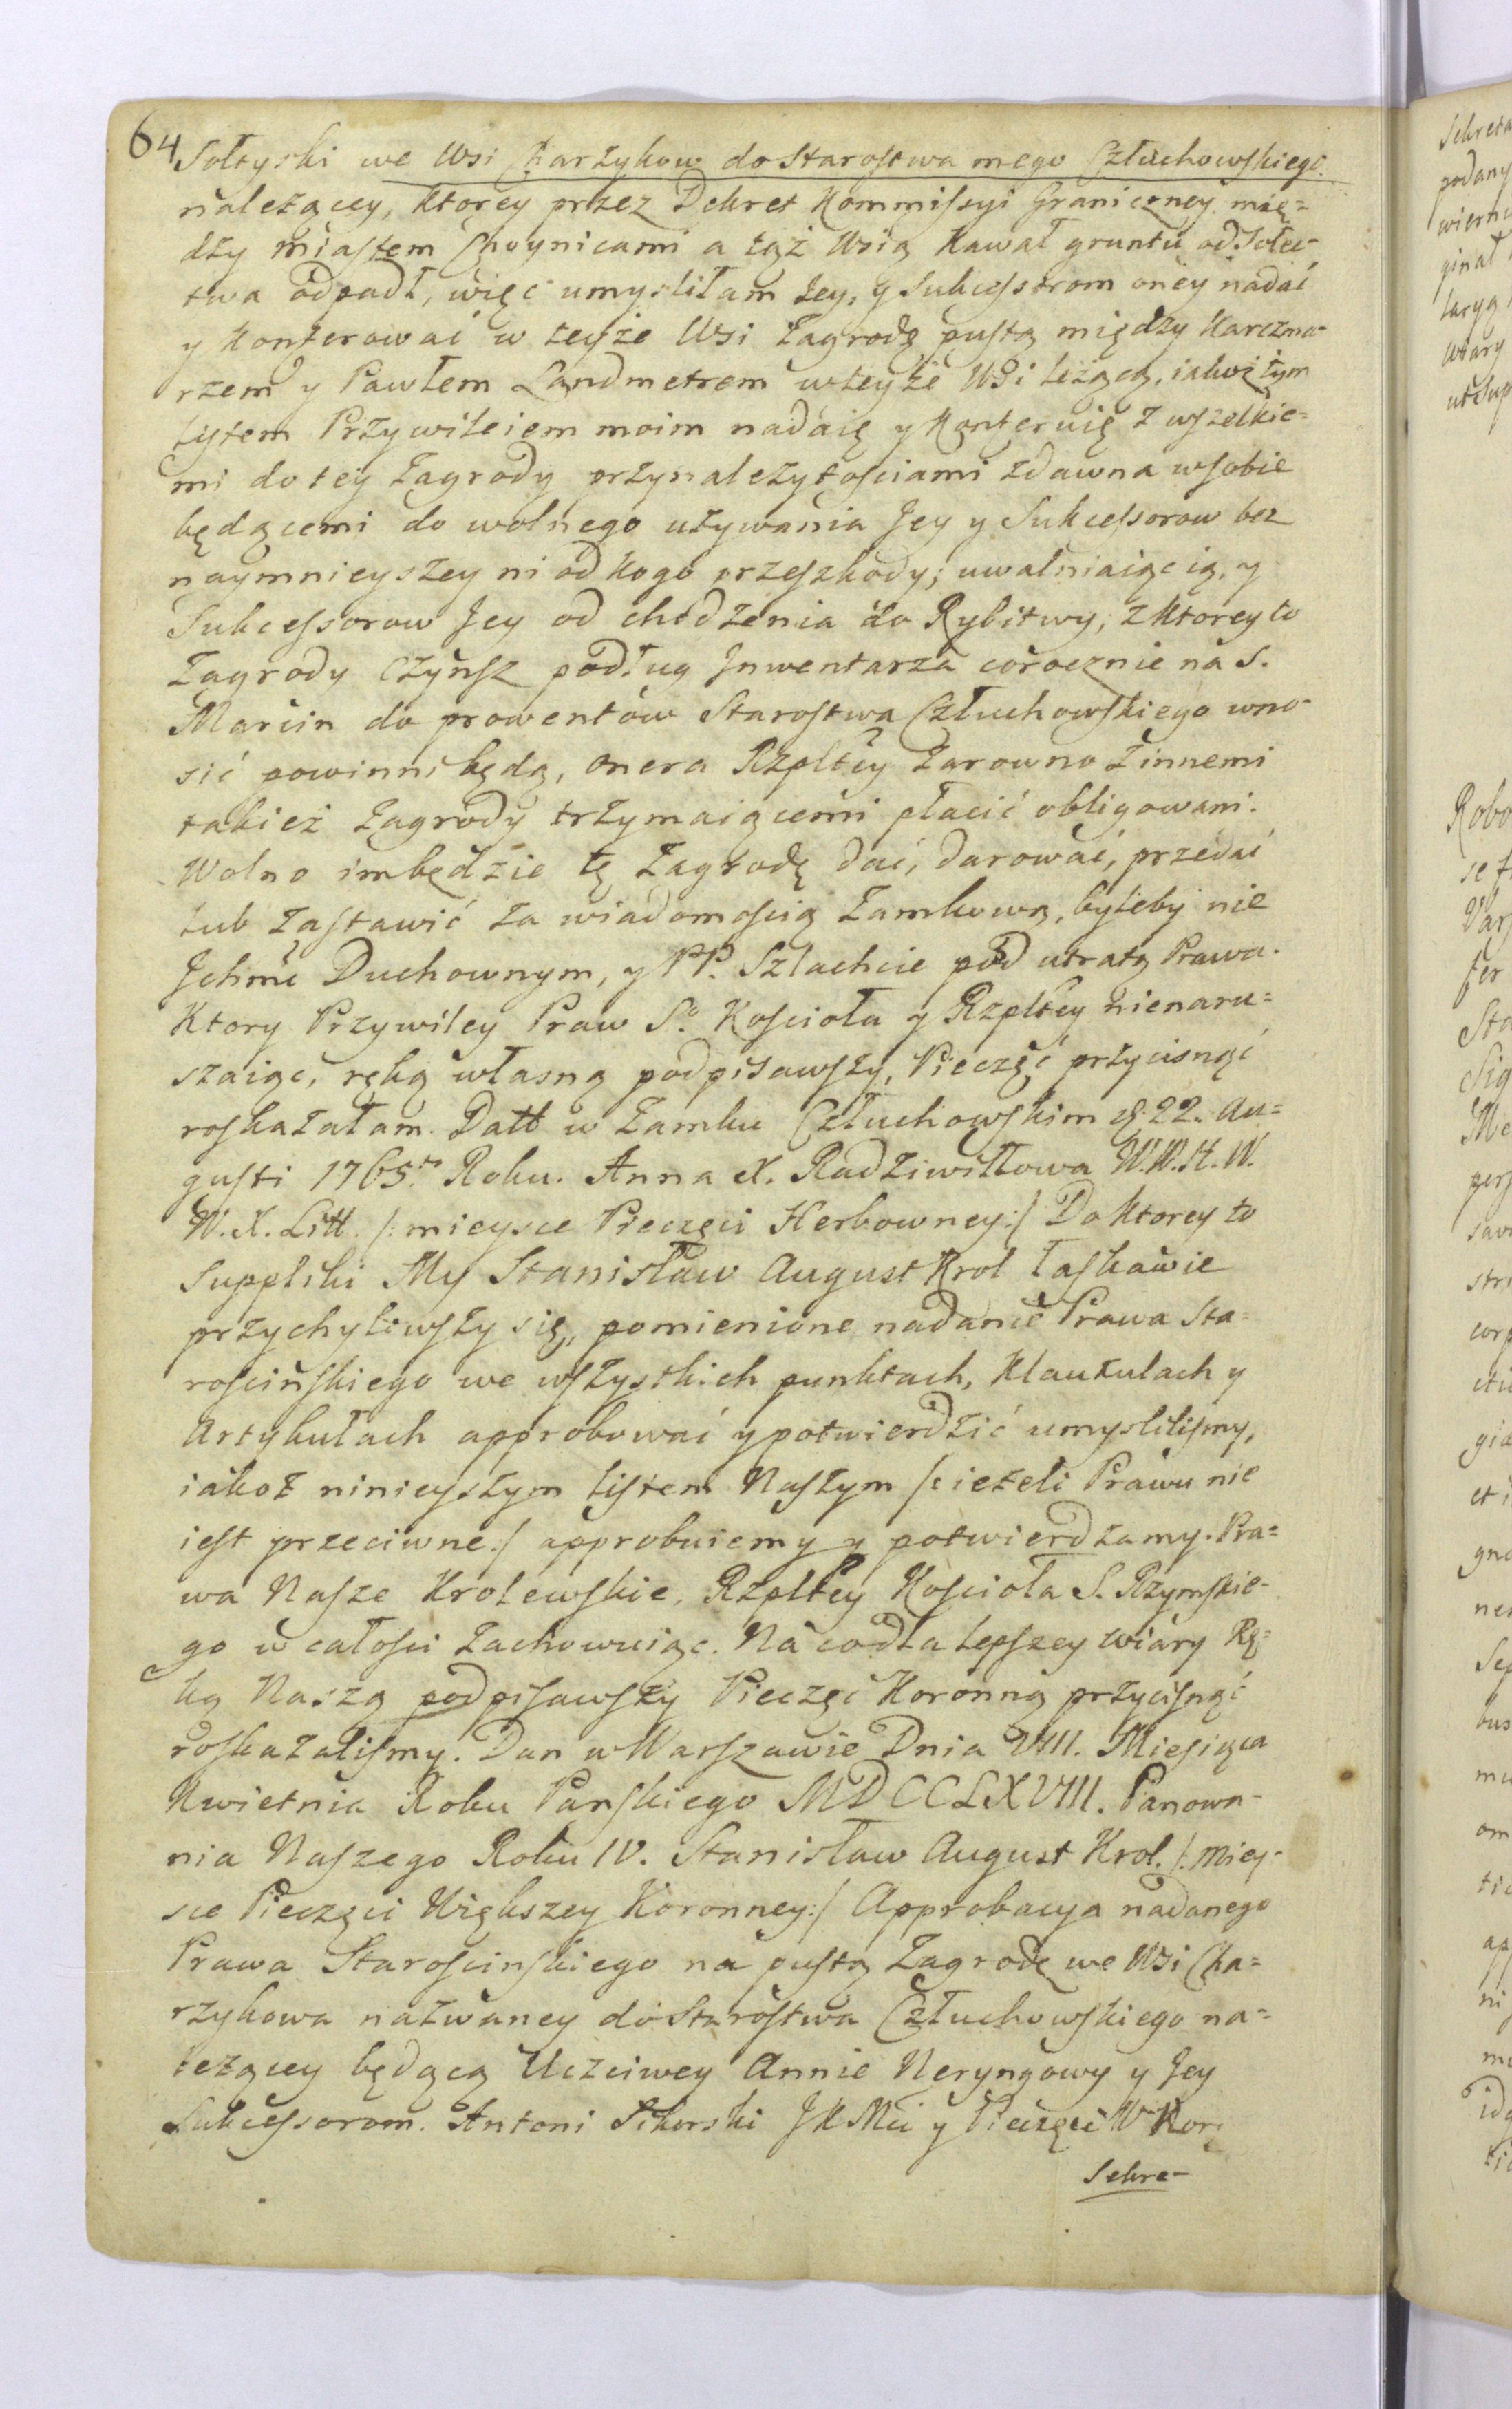 64
Sołtyski we Wsi Charzykow do Starostwa mego Człuchowskiego
należącey, ktorey przez Dekret Kommissyi Graniczney mię=
dzy miastem Choynicami a tąż Wsią Kawał gruntu od Sołec-
twa odpadł, więc umysliłam Jey, y Sukcessorom oney nadać
y konferować w teyże Wsi Zagrodę pustą między Karczma-
rzem y Pawłem Landmetrem w teyże Wsi leżącą, iakoż tym
listem Przywileiem moim nadaię y konferuię z wszelkie=
mi do tey Zagrody przynależytościami zdawna w sobie
będącemi do wolnego używania Jey y Sukcessorow bez
naymnieyszey ni od kogo przeszkody; uwalniaiąc ią, y
Sukcessorow Jey od chodzenia do Rybitwy; z ktorey to
Zagrody Czynsz podług Inwentarza corocznie na S.
Marcin do prowentów Starostwa Człuchowskiego wno-
sić powinni będą, onera Rzpltey zarowno z innemi
takież Zagrody trzymaiącemi płacić obligowani.
Wolno im będzie tę Zagrodę dać, darować, przedać
lub zastawić za wiadomością Zamkową, byleby nie
Jchmć Duchownym, y PP. Szlachcie pod utratą Prawa.
Ktory Przywiley Praw S.o Kościoła y Rzpltey nienaru=
szaiąc, ręką własną podpisawszy, Pieczęć przycisnąć
roskazałam. Datt w Zamku Człuchowskim d. 22. Au=
gusti 1765.o Roku. Anna X. Radziwiłłowa W.W.H.W.
W.X. Litt. /: mieysce Pieczęci Herbowney:/ Do ktorey to
Suppliki My Stanisław August Krol łaskawie
przychyliwszy się, pomienione nadanie Prawa Sta=
rościńskiego we wszystkich punktach, Klauzulach y
Artykułach approbować y potwierdzić umyslilismy,
iakoż ninieyszym listem Naszym /: ieżeli Prawu nie
iest przeciwne:/ approbuiemy y potwierdzamy. Pra=
wa Nasze Krolewskie, Rzpltey Kościoła S. Rzymskie-
go w całości zachowuiąc. Na co dla lepszey wiary Rę=
ką Naszą podpisawszy Pieczęć Koronną przycisnąć
roskazalismy. Dan w Warszawie Dnia VIII. Miesiąca
Kwietnia Roku Panskiego MDCCLXVIII. Panowa-
nia Naszego Roku IV. Stanisław August Krol. /: miey-
sce Pieczęci Większey Koronney:/ Approbacya nadanego
Prawa Starościnskiego na pustą Zagrodę we Wsi Cha=
rzykowa nazwaney do Starostwa Człuchowskiego na=
leżącey będącą Uczciwey Annie Neryngowy y Jey
Sukcessorom. Antoni Sikorski JKMci y Pieczęci W. Kor.
Sekre-